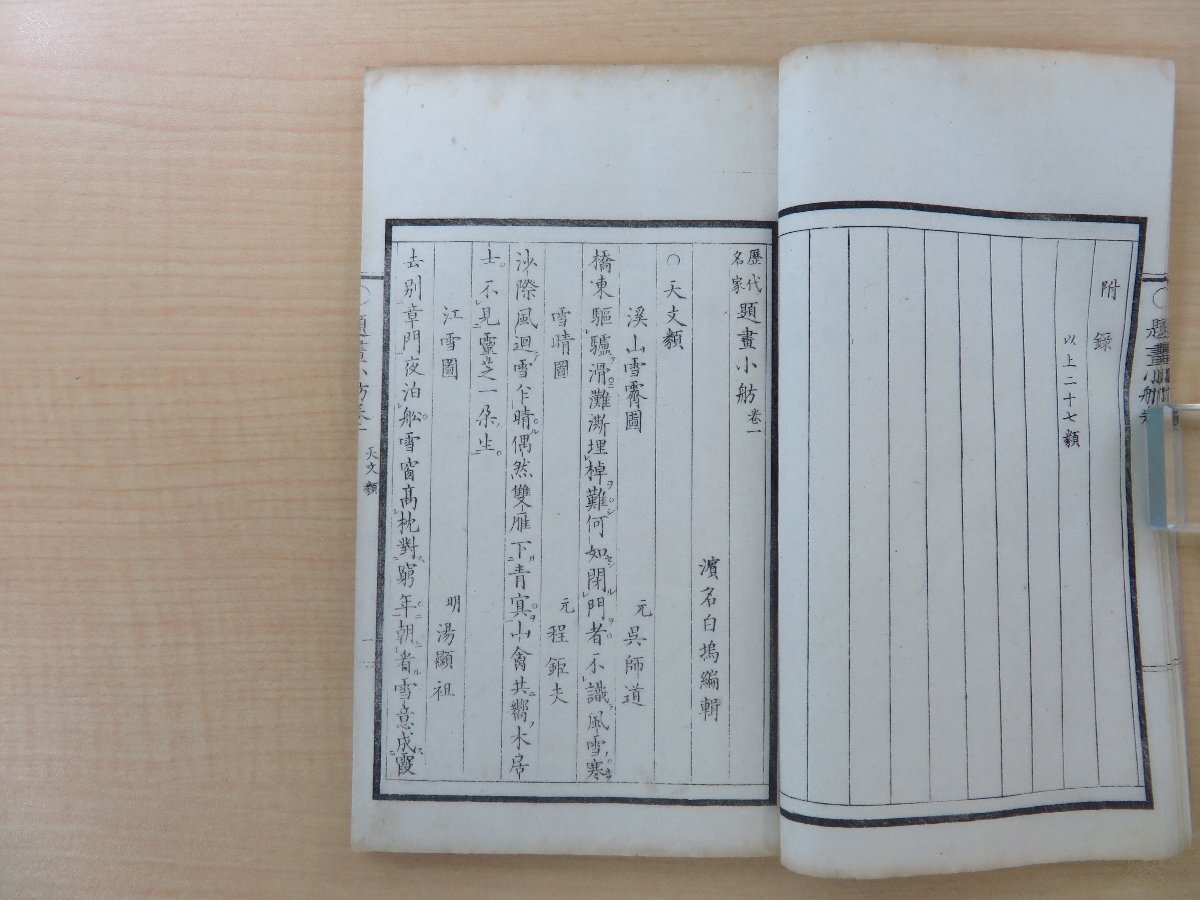 附錄
以上二十七類
題畫小舫
歷代名家題畫小舫卷一
濱名白塢編輯
○天文類
溪山雪霽圖 元 吳師道
橋東驅驢滑灘澌埋棹難何如閉門者不識風雪寒
雪晴圖 元 程鉅夫
沙際風迴雪乍晴偶然雙雁下青冥山禽共嚮木居
士不見靈芝一朵生
江雪圖 明 湯顯祖
去別章門夜泊舩雪窗高枕對窮年朝看雪意成霞
天文類